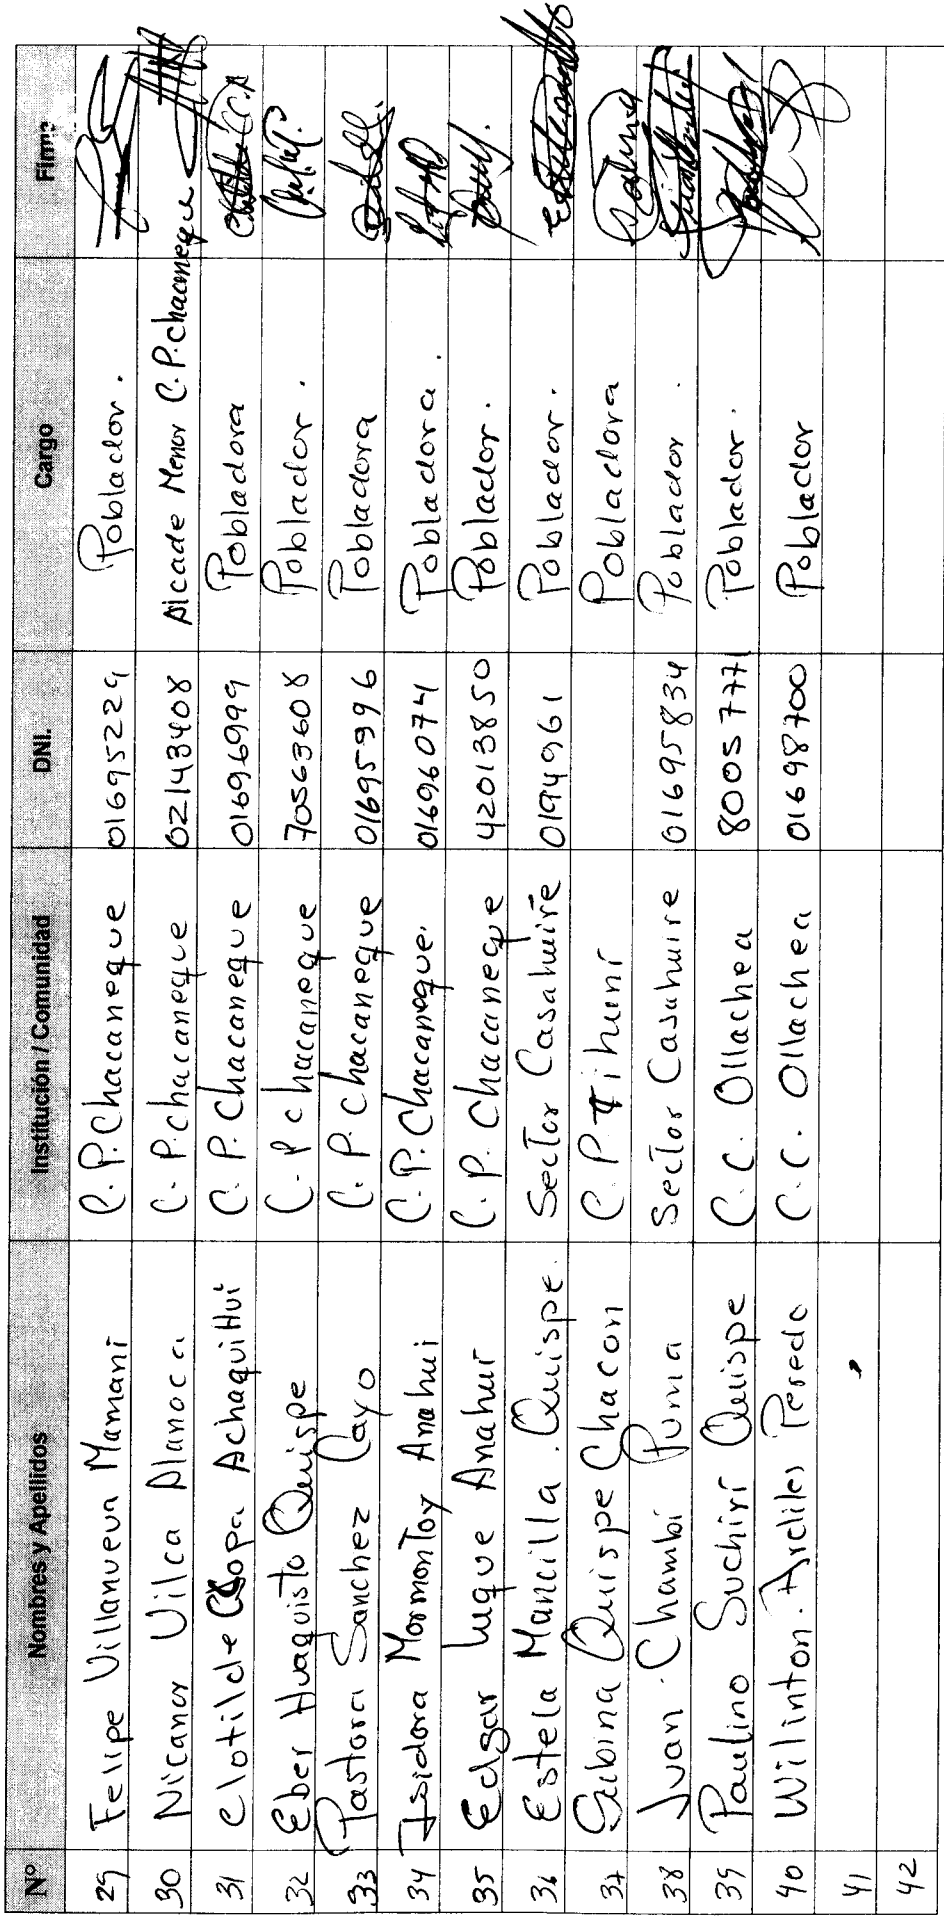 Nº Nombres y Apellidos Institución / Comunidad DNI. Cargo Firma
29 Felipe Villanueva Mamani C.P. Chacaneque 01695229 Poblador.
30 Nicanor Vilca Alanoca C.P. chacaneque 02143408 Alcade Menor C.P. chacaneque
31 Clotilde Ccopa Achaquihui C.P. Chacaneque 01696999 Pobladora
32 Eber Huaquisto Quispe C.P chacaneque 70563608 Poblador.
33 Pastora Sanchez Cayo C.P. Chacaneque 01695996 Pobladora
34 Isidora Mormontoy Anahui C.P. Chacaneque. 01696074 Pobladora.
35 Edgar Luque Anahui C.P. Chacaneque 42013850 Poblador.
36 Estela Mancilla Quispe. Sector Casahuire 01944961 Poblador.
37 Sabina Quispe Chacon C.P. Tihuni Pobladora
38 Juan Chambi Puma Sector Casahuire 01695834 Poblador.
39 Paulino Suchiri Quispe C.C. Ollachea 80057771 Poblador.
40 Wilinton. Ardiles Peredo C.C. Ollachea 01698700 Poblador
41
42